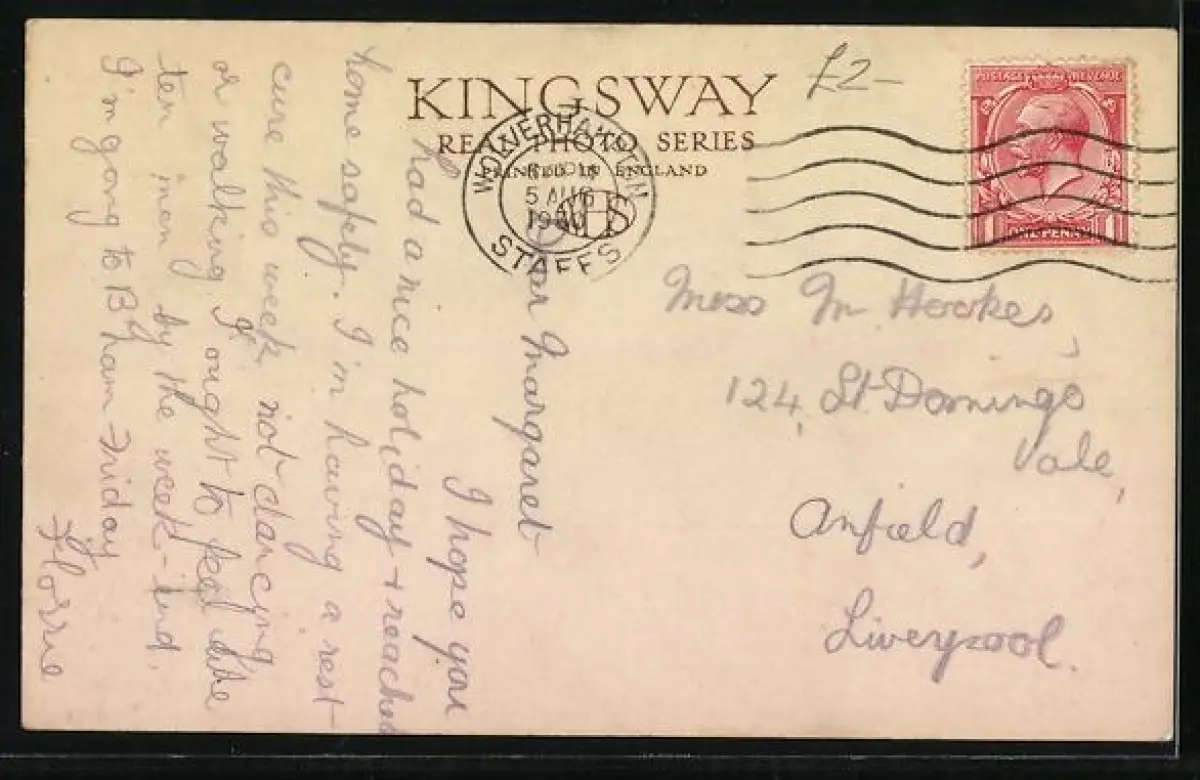 KINGSWAY
REAL PHOTO SERIES
PRINTED IN ENGLAND
£2-
WOLVERHAMPTON
5 AUG
STAFFS
POSTAGE REVENUE
ONE PENNY
Miss M Hookes,
124, St Domingo
Vale,
Anfield,
Liverpool.
Dear Margaret
I hope you
had a nice holiday & reached
home safely. I'm having a rest
cure this week, not dancing
or walking. I ought to feel like
ten men by the week-end.
I'm going to B'ham Friday
Florrie